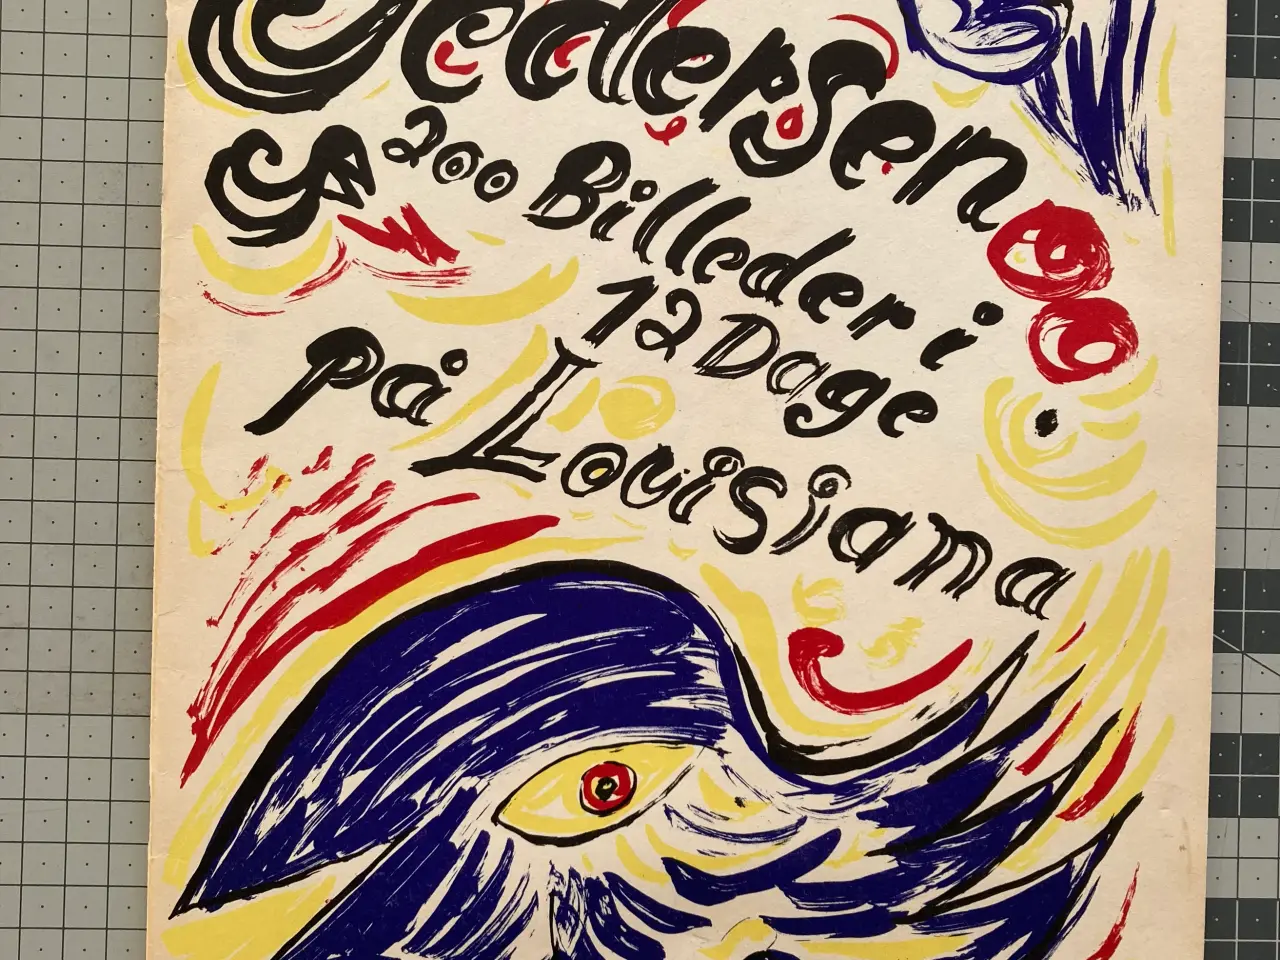 Pedersen
200 Billeder i
12 Dage
på Louisiana